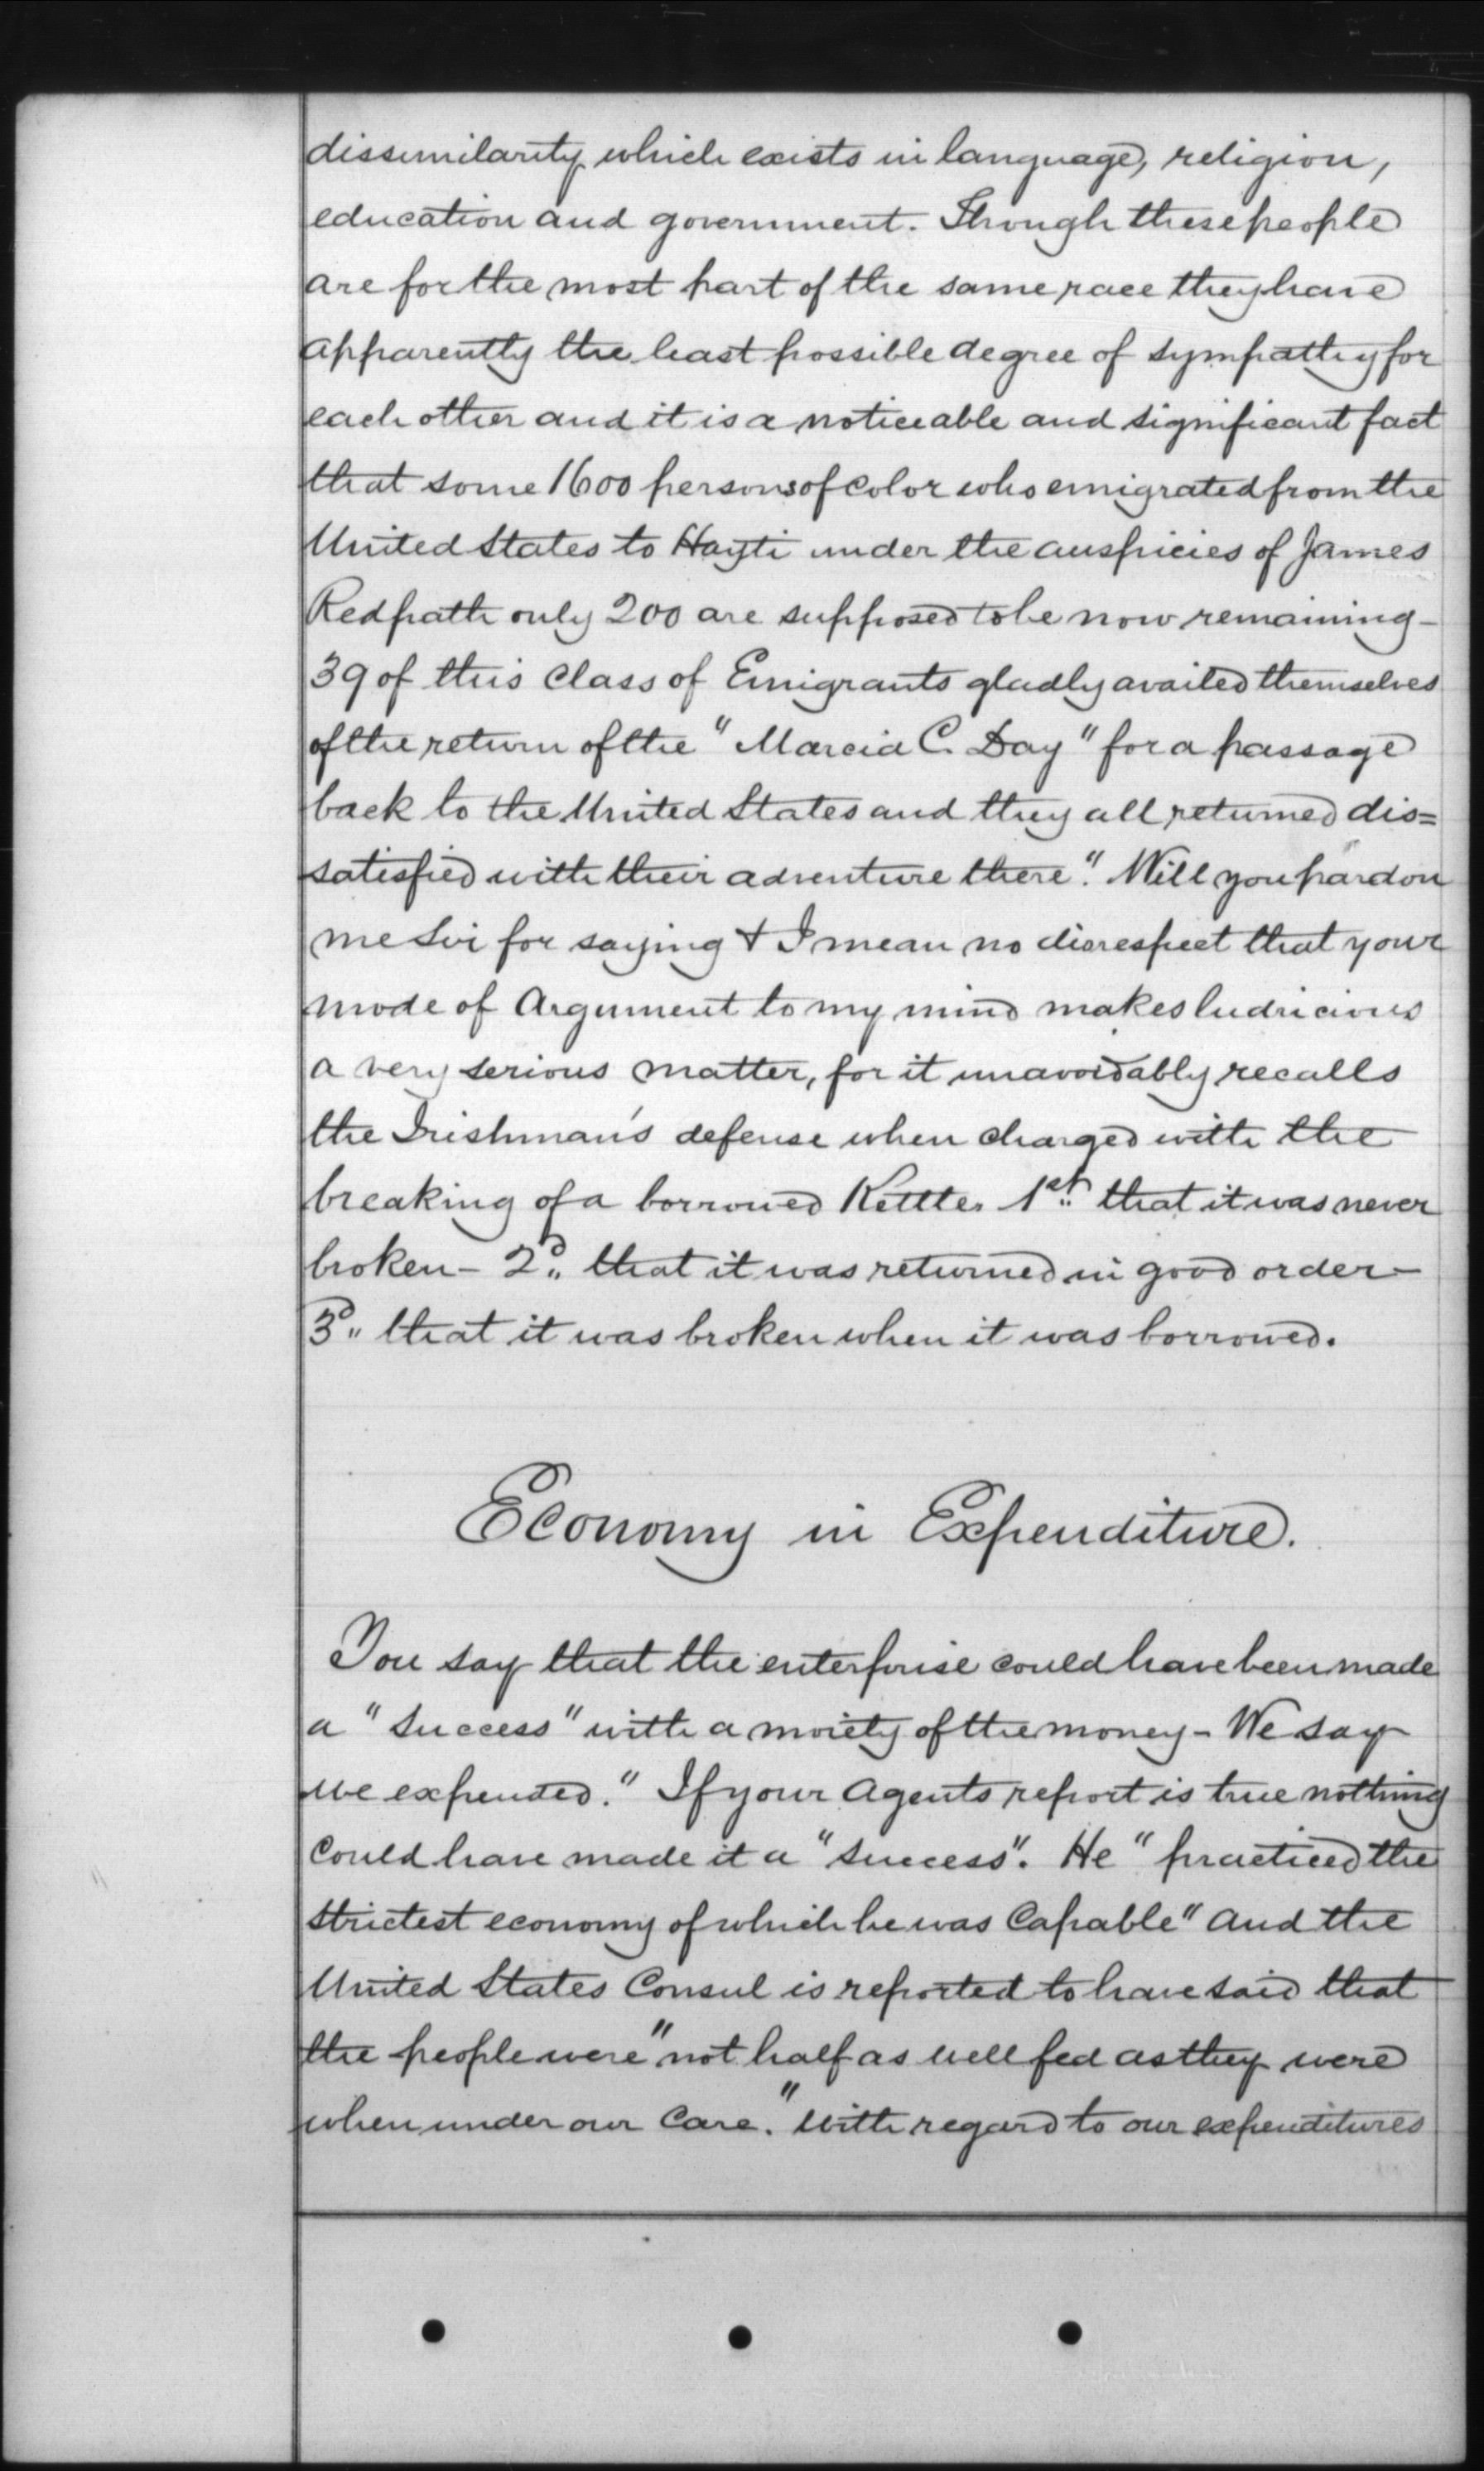 dissimilarity which exists in language, religion,
education and government. Though these people
are for the most part of the same race they have
apparently the least possible degree of sympathy for
each other and it is a noticeable and significant fact
that some 1600 persons of color who emigrated from the
United States to Hayti under the auspicies of James
Redpath only 200 are supposed to be now remaining -
39 of this class of Emigrants gladly availed themselves
of the return of the "Marcia C. Day" for a passage
back to the United States and they all returned dis=
satisfied with their adventure there." Will you pardon
me Sir for saying & I mean no disrespect that your
mode of Argument to my mind makes ludricious
a very serious matter, for it unavoidably recalls
the Irishman's defense when charged with the
breaking of a borrowed Kettle. 1st that it was never
broken - 2d that it was returned in good order -
3d that it was broken when it was borrowed.
Economy in Expenditure.
You say that the enterprise could have been made
a "Success" with a moiety of the money - We say
we expended." If your Agents report is true nothing
could have made it a "success". He "practiced the
strictest economy of which he was Capable" and the
United States Consul is reported to have said that
the people were "not half as well fed as they were
when under our Care." With regard to our expenditures